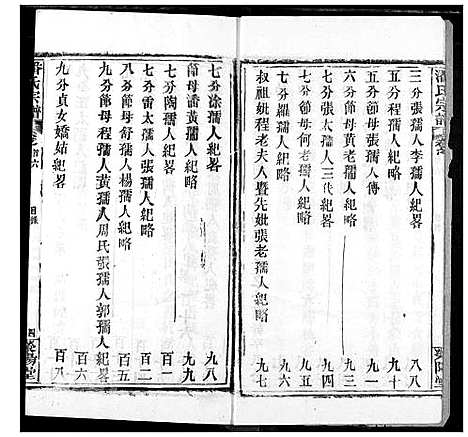 三分張孺人李孺人紀畧 八八
五分程孺人紀略 九十
五分公孺人傳 九一
六分節母黃老孺人紀略 九三
七分張太孺人三代紀畧 九四
七分節母何老孺人紀略 九五
七分羅孺人紀略 九六
叔祖妣程老夫人暨先妣張老孺人紀略 九七
七分涂孺人紀略 九八
節母潘黃孺人紀略 九九
七分陶孺人紀略 百一
七分雷太孺人紀略 百二
八分節母舒孺人楊孺人紀略 百五
八分節母程孺人黃孺人周氏張孺人郭孺人紀畧 百六
九分貞女嬌姑紀畧 百八
氏宗譜 卷首六 目錄 四 滎陽堂